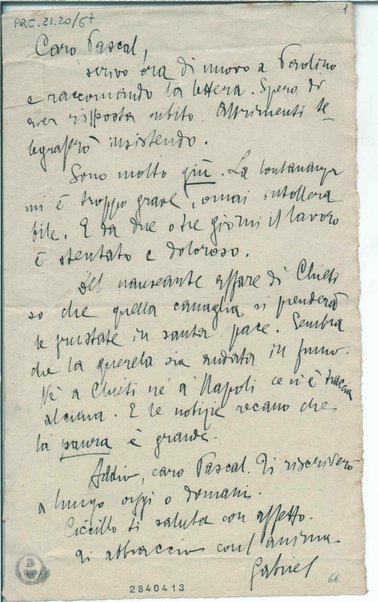 ARC.21.20/67
1
Caro Pascal,
scrivo ora di nuovo a Paolino
e raccomando la lettera. Spero di
aver risposta subito. Altrimenti te-
legraferò insistendo.
Sono molto giù. La lontananza
mi è troppo grave, omai intollera
bile. E da due o tre giorni il lavoro
è stentato e doloroso.
Del nauseante affare di Chieti
so che quella canaglia si prenderà
le in santa pace. Sembra
che la querela sia andata in fumo.
Né a Chieti né a Napoli ce n'è traccia
alcuna. E le notizie recano che
la paura è grande.
Addio, caro Pascal. Ti riscriverò
a lungo oggi o domani.
Ciccillo ti saluta con affetto.
Ti abbraccio con l'anima
Gabriel
66
2840413